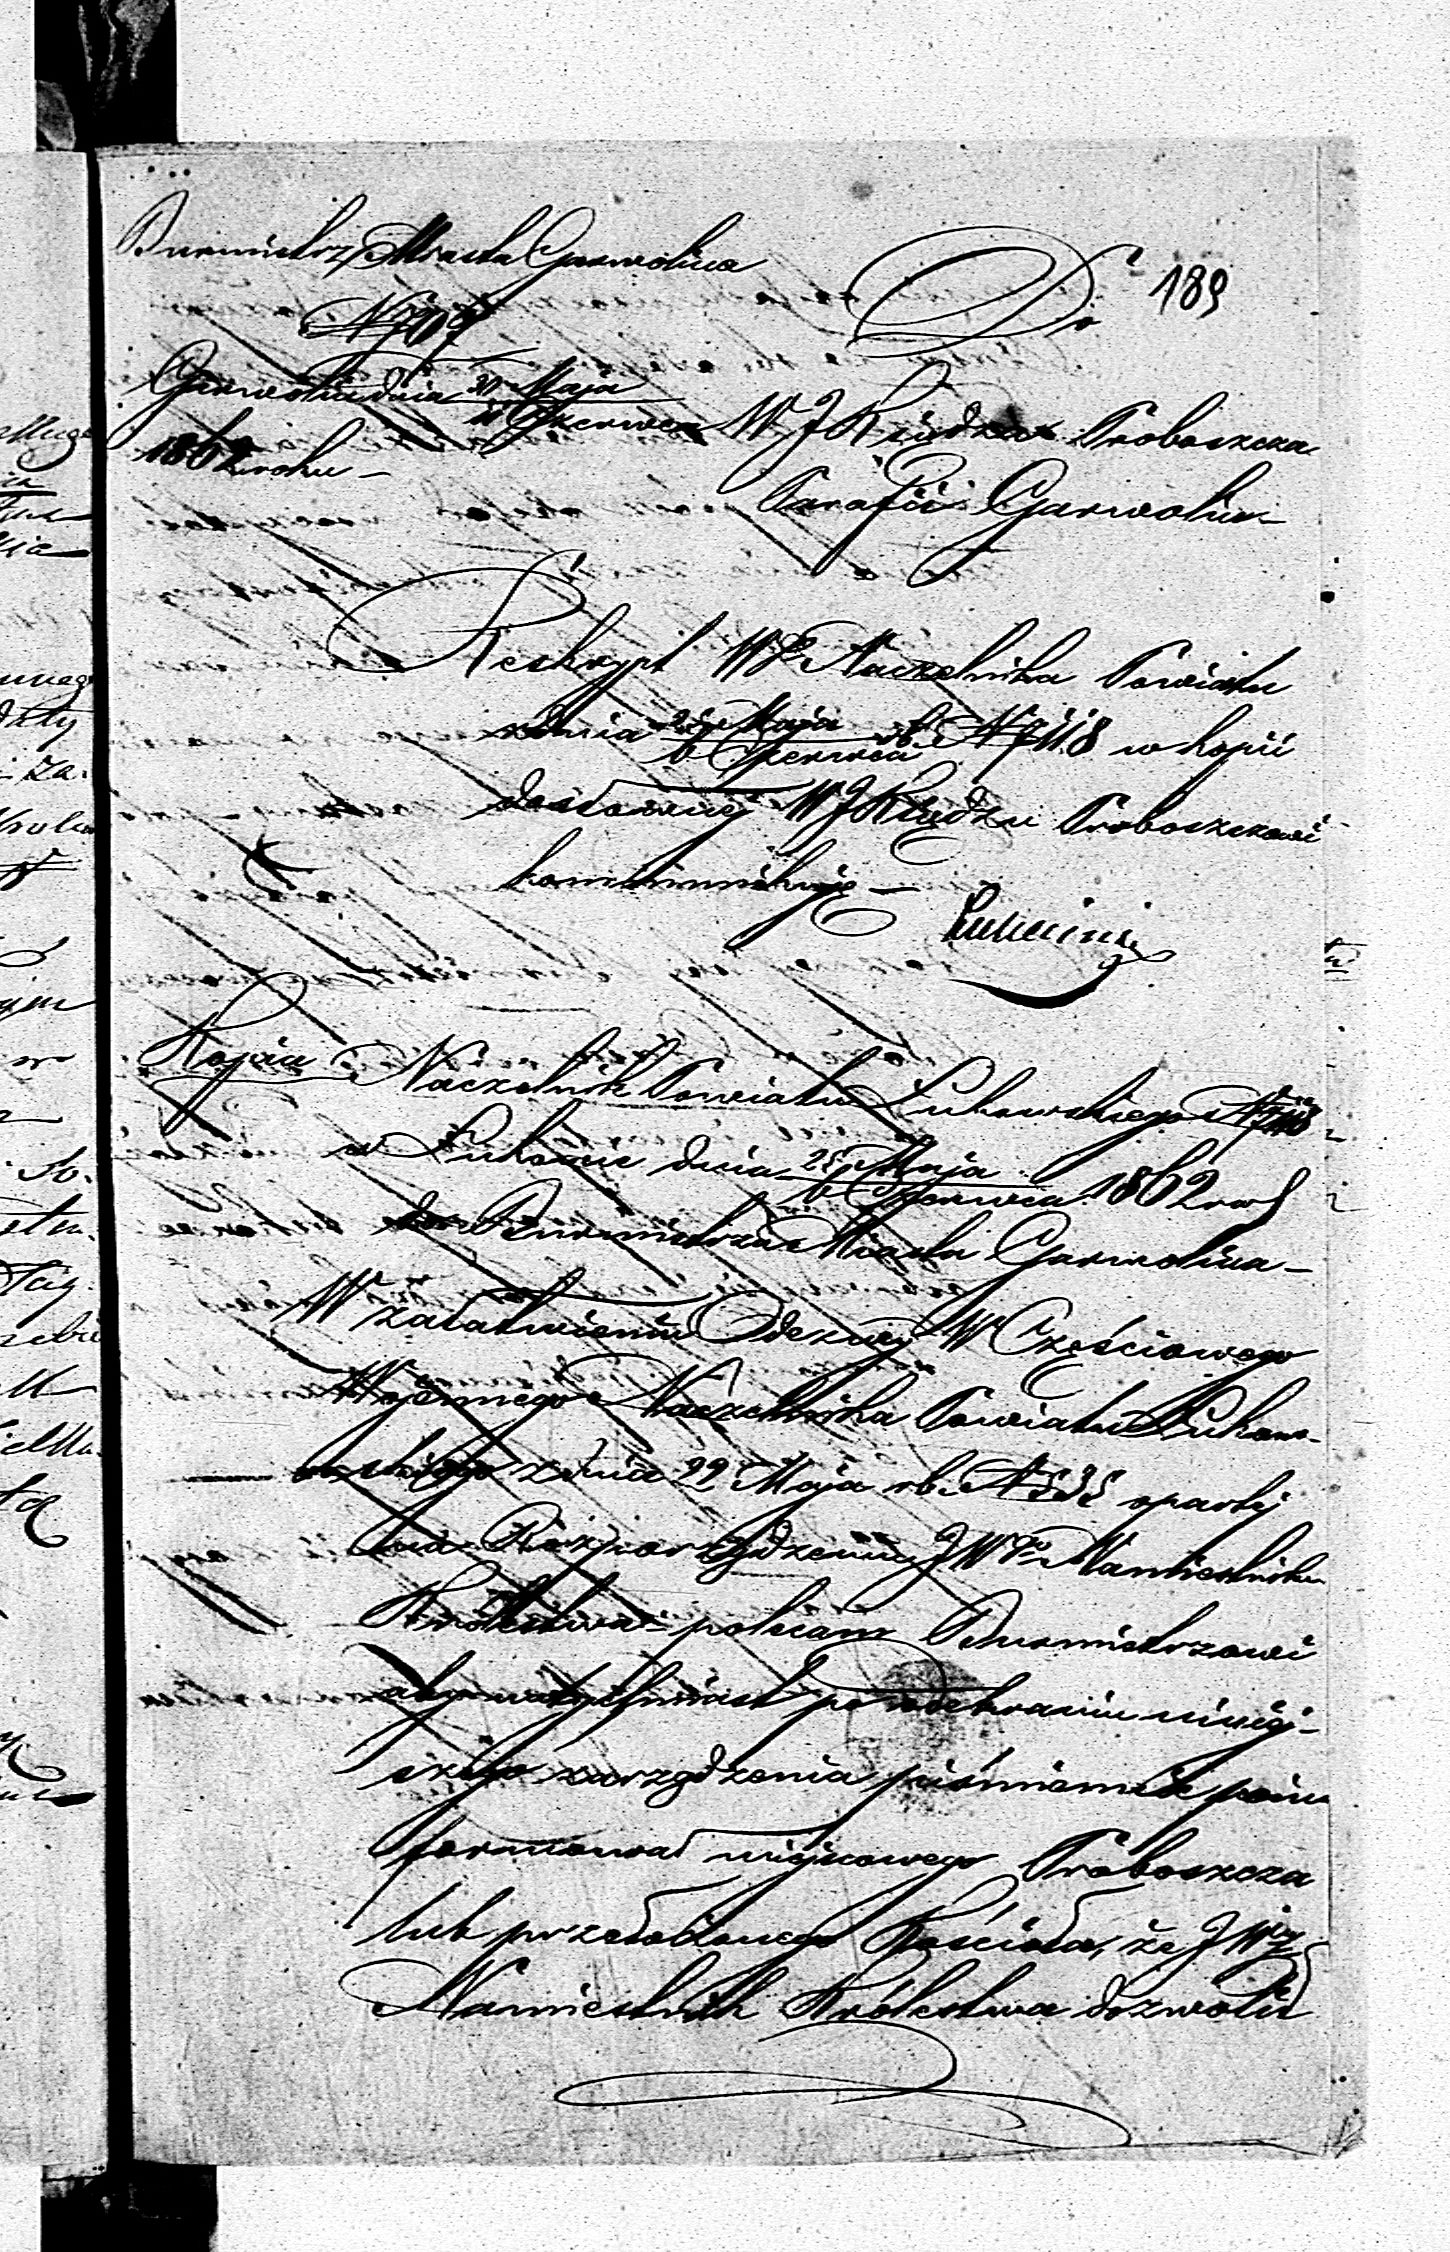 Burmistrz Miasta Garwolina
189
Do
Garwolin dnia 31 Maja
Czerwca
1862 roku –
W J Księdza Proboszcza
Parafii Garwolin –
Reskrypt WP Naczelnika Powiatu
z dnia 25 Maja
6 Czerwca rb. N 7118 w kopii
dosłownej W J Księdzu Proboszczowi
kommunikuję –
Kopia Naczelnik Powiatu Łukowskiego N 7118
w Łukowie dnia 25 Maja
6 Czerwca 1862 rod
do Burmistrza Miasta Garwolina –
W załatwieniu Odezwy W Częściowego
Wojennego Naczelnika Powiatu Łukow-
skiego z dnia 22 Maja rb. N opartej
na Rozporządzeniu JW Pa Namiestnika
Królestwa – polecam Burmistrzowi
aby natychmiast po odebraniu niniej-
szego zarządzenia piśmiennie poin
formował miejscowego Proboszcza
lub przełożonego Kościoła, że JW
Namiestnik Królestwa dozwolił